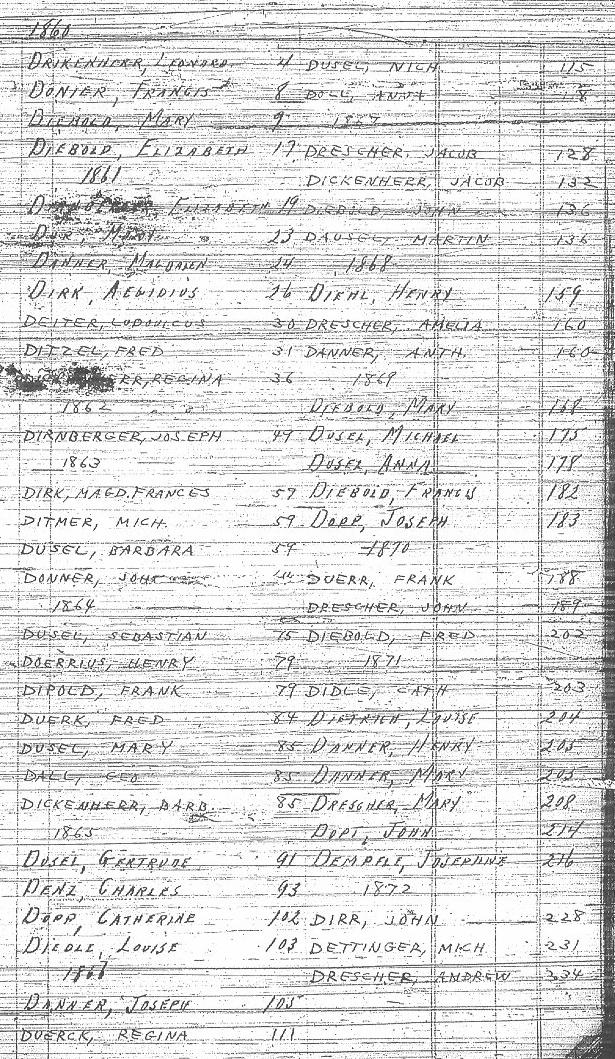 1860
DRIKENHERR, LEONARD 4
DONIER, FRANCIS 8
DIEBOLD, MARY 9
DIEBOLD, ELIZABETH 17
1861
ELIZABETH 19
23
DANNER, MAGDALEN 24
DIRK, AEGIDIUS 26
DEITER, LUDOULCUS 30
DITZEL, FRED 31
ER, REGINA 36
1862
DIRNBERGER, JOSEPH 49
1863
DIRK, MAGD. FRANCES 57
DITMER, MICH. 59
DUSEL, BARBARA 59
DONNER,
1864
DUSEL, SEBASTIAN 75
DOERRIUS, HENRY 79
DIPOLD, FRANK 79
DUERK, FRED 84
DUSEL, MARY 85
DALL, GEO 85
DICKENHERR, BARB. 85
1865
DUSEL, GERTRUDE 91
DENZ, CHARLES 93
DOPP, CATHERINE 102
DIEDLE, LOUISE 103
DANNER, JOSEPH 105
DUERCK, REGINA 111
DUSEL, NICH. 115
DOLL, ANNA 118
DRESCHER, JACOB 128
DICKENHERR, JACOB 132
DIEBOLD, JOHN 136
DAUSEL, MARTIN 136
1868
DIEHL, HENRY 159
DRESCHER, AMELIA 160
DANNER, ANTH. 160
1869
DIEBOLD, MARY 168
DUSEL, MICHAEL 175
DUSEL, ANNA 178
DIEBOLD, FRANCIS 182
DOPP, JOSEPH 183
1870
DUERR, FRANK 188
DRESCHER, JOHN 189
DIEBOLD, FRED 202
1871
DIDLE, CATH 203
DIETRICH, LOUISE 204
DANNER, HENRY 205
DANNER, MARY 205
DRESCHER, MARY 208
DOPT, JOHN 214
DEMPFLE, JOSEPHINE 216
1872
DIRR, JOHN 228
DETTINGER, MICH 231
DRESCHER, ANDREW 234